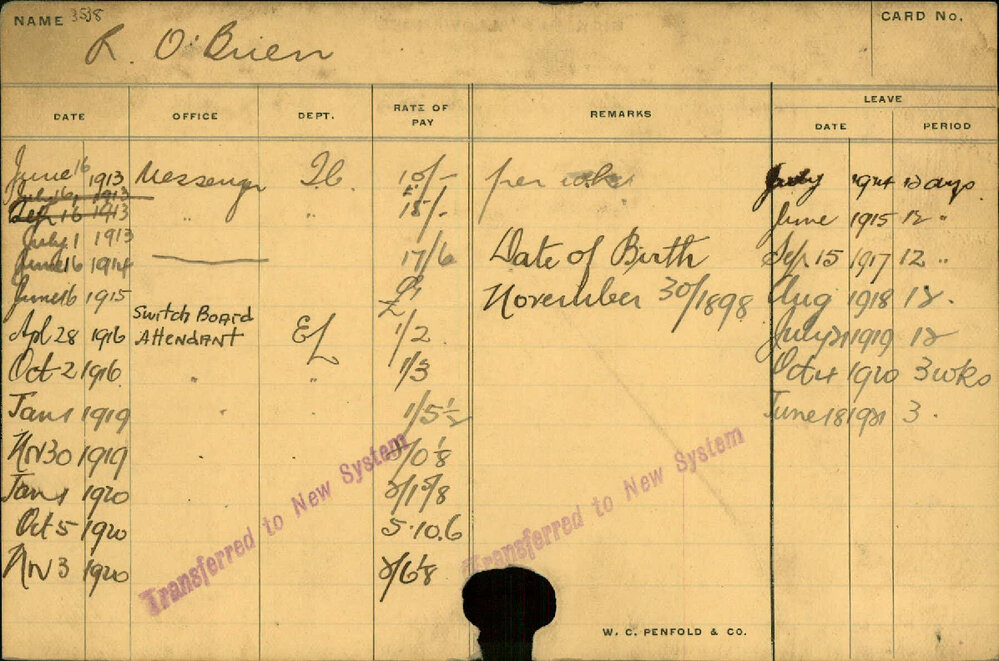 NAME 3538 CARD No.
R. O'Brien
DATE OFFICE DEPT. RATE OF PAY REMARKS LEAVE
DATE PERIOD
June 16 1913 Messenger 10/- per July 1914 12 days
July 16 1913
16 1913 " " 15/- June 1915 12 "
July 1 1913
June 16 1914 17/6 Date of Birth Sep. 15 1917 12 "
June 16 1915 November 30/1898 Aug 1918 12 "
Switch Board
Apl 28 1916 Attendant EL 1/2 July 21 1919 12
Oct 2 1916 " " 1/3 Oct 4 1920 3 wks
Jan 1 1919 " 1/5½ June 18 1921 3 "
Nov 30 1919
Jan 1 1920
Oct 5 1920 5.10.6
Nov 3 1920
Transferred to New System
Transferred to New System
W. C. PENFOLD & CO.